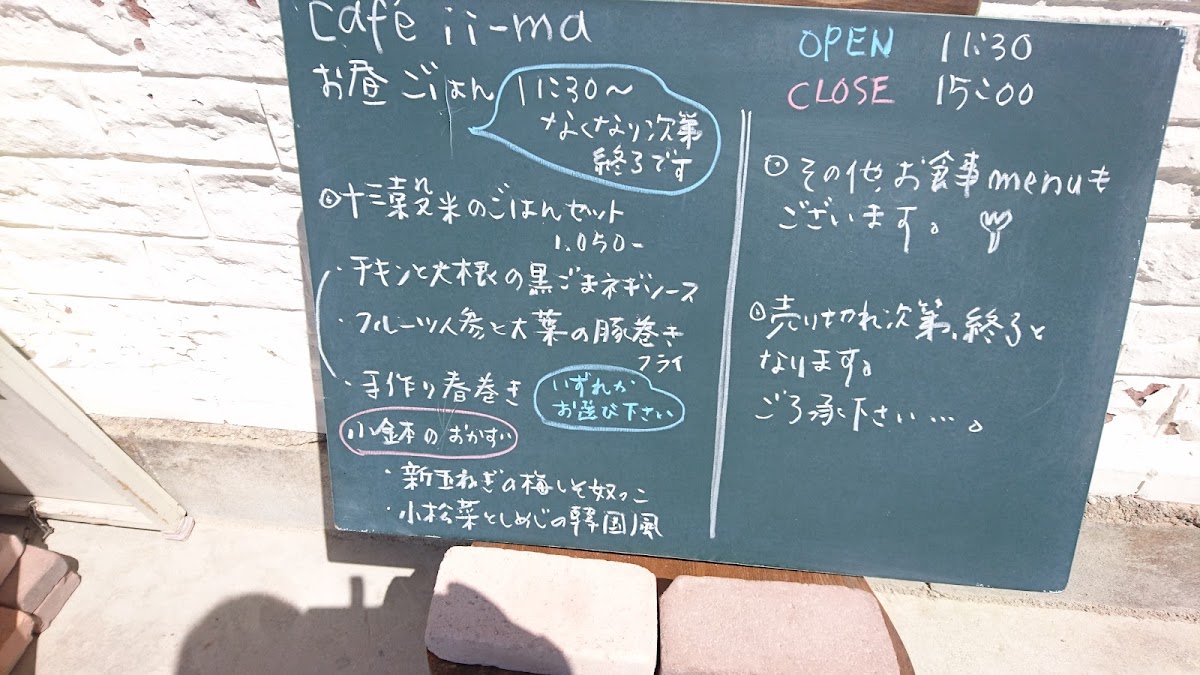 Café ii-ma
お昼ごはん
11:30〜
なくなり次第
終了です
十三穀米のごはんセット
1.050-
・チキンと大根の黒ごまネギソース
・フルーツ人参と大葉の豚巻き
フライ
・手作り春巻き
いずれか
お選び下さい
小鉢のおかずい
・新玉ねぎの梅しそ奴っこ
・小松菜としめじの韓国風
OPEN 11:30
CLOSE 15:00
その他、お食事menuも
ございます。
売り切れ次第、終了と
なります。
ご了承下さい…。